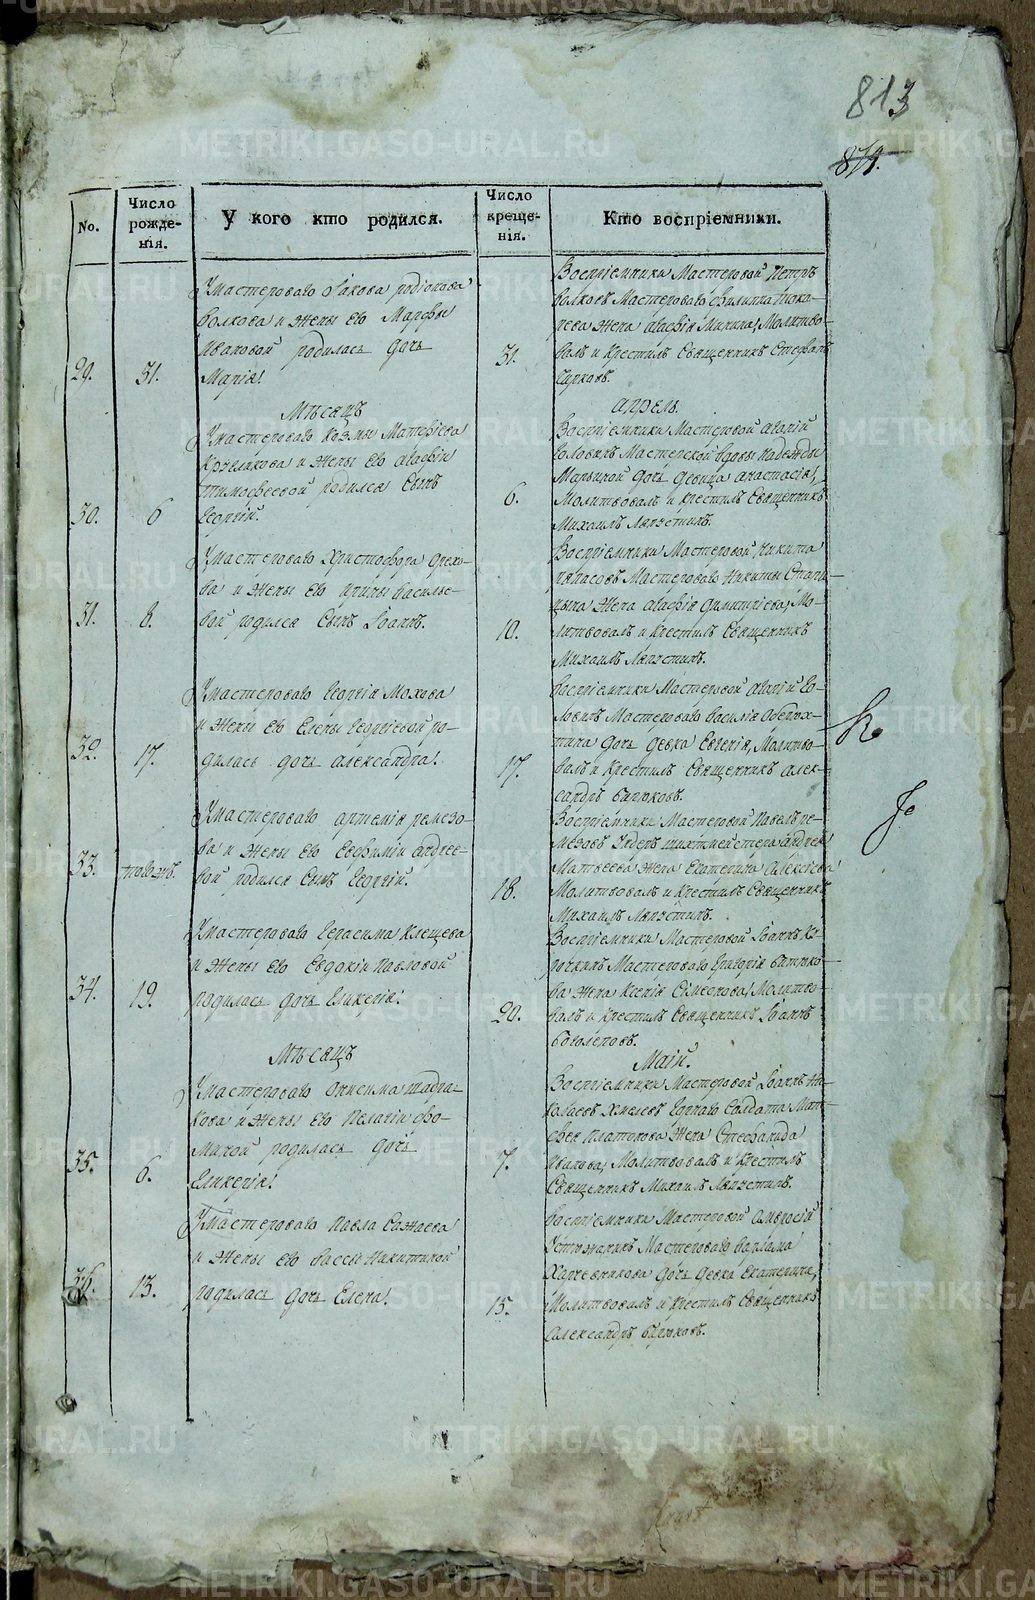 813
879.
No.
Число рожде-нія.
У кого кто родился.
Число креще-нія.
Кто воспріемники.
29.
31.
У мастероваго Іакова родіонова
волкова и жены его Марфы
Ивановой родилась дочь
Марія!
31.
Воспріемники Мастеровой Петръ
волковъ Мастероваго Филиппа тока-
рева жена Агафія Минина, Молитво-
валъ и Крестилъ Священникъ Стефанъ
Чирковъ.
Мѣсяцъ
апрель.
30.
6
У мастероваго Козмы Матфіева
и жены его Агафіи
тимофеевой родился Сынъ
Георгій.
6.
Воспріемники Мастеровой
Мастерской вдовы Надежды
дочь девица анастасія,
Молитвовалъ и Крестилъ Священникъ
Михаилъ Ляпустинъ.
31.
8.
У мастероваго Христофора Орехо-
ва и жены его Ирины василье-
вой родился Сынъ Іоаннъ.
10.
Воспріемники Мастеровой Никита
Мастероваго Никиты
жена Агафія Димитріева, Мо-
литвовалъ и Крестилъ Священникъ
Михаилъ Ляпустинъ.
32.
17.
У мастероваго Георгія Мохова
и жены его Елены Георгіевой ро-
дилась дочь александра!
17.
Воспріемники Мастеровой
Мастероваго Василія
дочь девка Евгенія, Молитво-
валъ и Крестилъ Священникъ алек-
сандръ бирюковъ.
33.
тогожъ.
У мастероваго артемія ремезо-
ва и жены его Евфиміи андрее-
вой родился Сынъ Георгій.
18.
Воспріемники Мастеровой Павелъ ре-
мезовъ Ундеръ шихтмейстера андрея
Матвеева жена Екатерина Алексіева
Молитвовалъ и Крестилъ Священникъ
Михаилъ Ляпустинъ.
34.
19.
У мастероваго Герасима Клещева
и жены его Евдокіи Павловой
родилась дочь Гликерія!
20.
Воспріемники Мастеровой Іоаннъ Ку-
рочкинъ Мастероваго Григорія бирюко-
ва жена Ксенія Симеонова, Молитво-
валъ и Крестилъ Священникъ Іоаннъ
боголеповъ.
Мѣсяцъ
Маій.
35.
6.
У мастероваго Онисима шадри-
кова и жены его Пелагіи фо-
миной родилась дочь
Гликерія!
7.
Воспріемники Мастеровой Іоаннъ Ни-
колаевъ Хмелевъ Горнаго Солдата Мат-
фея платонова жена Стефанида
Иванова, Молитвовалъ и Крестилъ
Священникъ Михаилъ Ляпустинъ.
36.
13.
У мастероваго Павла Сажаева
и жены его вассы Никитиной
родилась дочь Елена!
15.
Воспріемники Мастеровой Амвросій
Устюжанинъ Мастероваго варлама
Харчевникова дочь девка Екатерина,
Молитвовалъ и Крестилъ Священникъ
Александръ бирюковъ.
METRIKI.GASO-URAL.RU